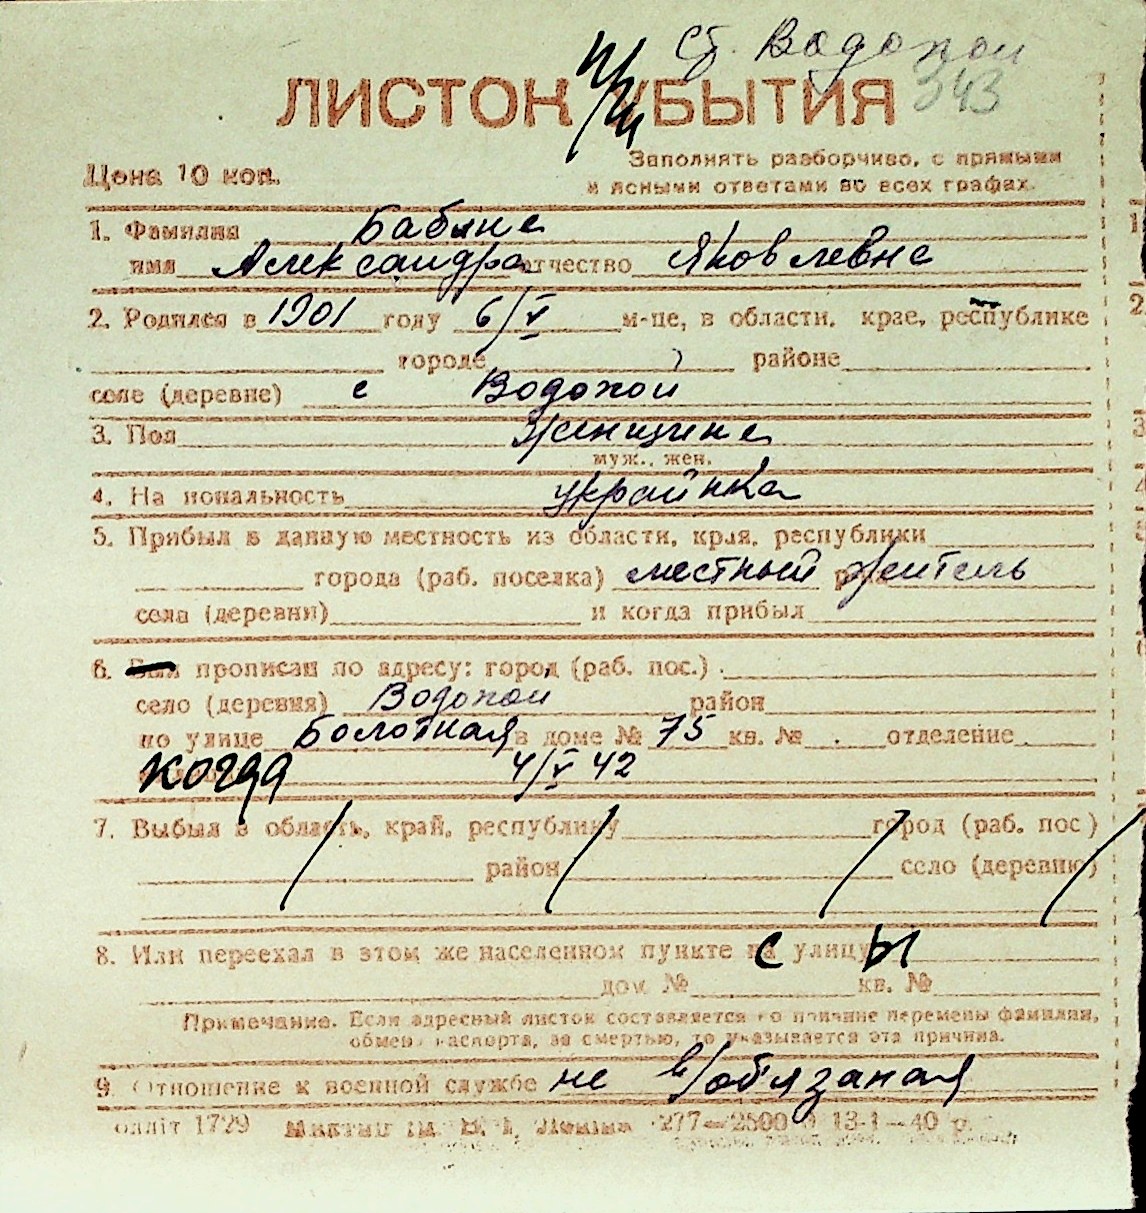 ст. Водопой
ЛИСТОК ПРИБЫТИЯ 343
Цена 10 коп.
Заполнять разборчиво, с прямыми
и ясными ответами во всех графах.
1. Фамилия Бабина
имя Александра отчество Яковлевна
2. Родился в 1901 году 6/V м-це, в области, крае, республике
городе районе
селе (деревне) с Водопой
3. Пол Женщина
муж., жен.
4. На иональность украинка
5. Прибыл в данную местность из области, края, республики
города (раб. поселка) местный житель
села (деревни) и когда прибыл
6. Был прописан по адресу: город (раб. пос.)
село (деревня) Водопой район
по улице Болотная в доме № 75 кв. № отделение
когда 4/V 42
7. Выбыл в область, край, республику город (раб. пос)
район село (деревню)
8. Или переехал в этом же населенном пункте с улицы
дом № кв. №
Примечание. Если адресный листок составляется по причине перемены фамилии,
обмена паспорта, за смертью, то указывается эта причина.
9. Отношение к военной службе не в/обязаная
1729 277—2500 13-1—40 р.